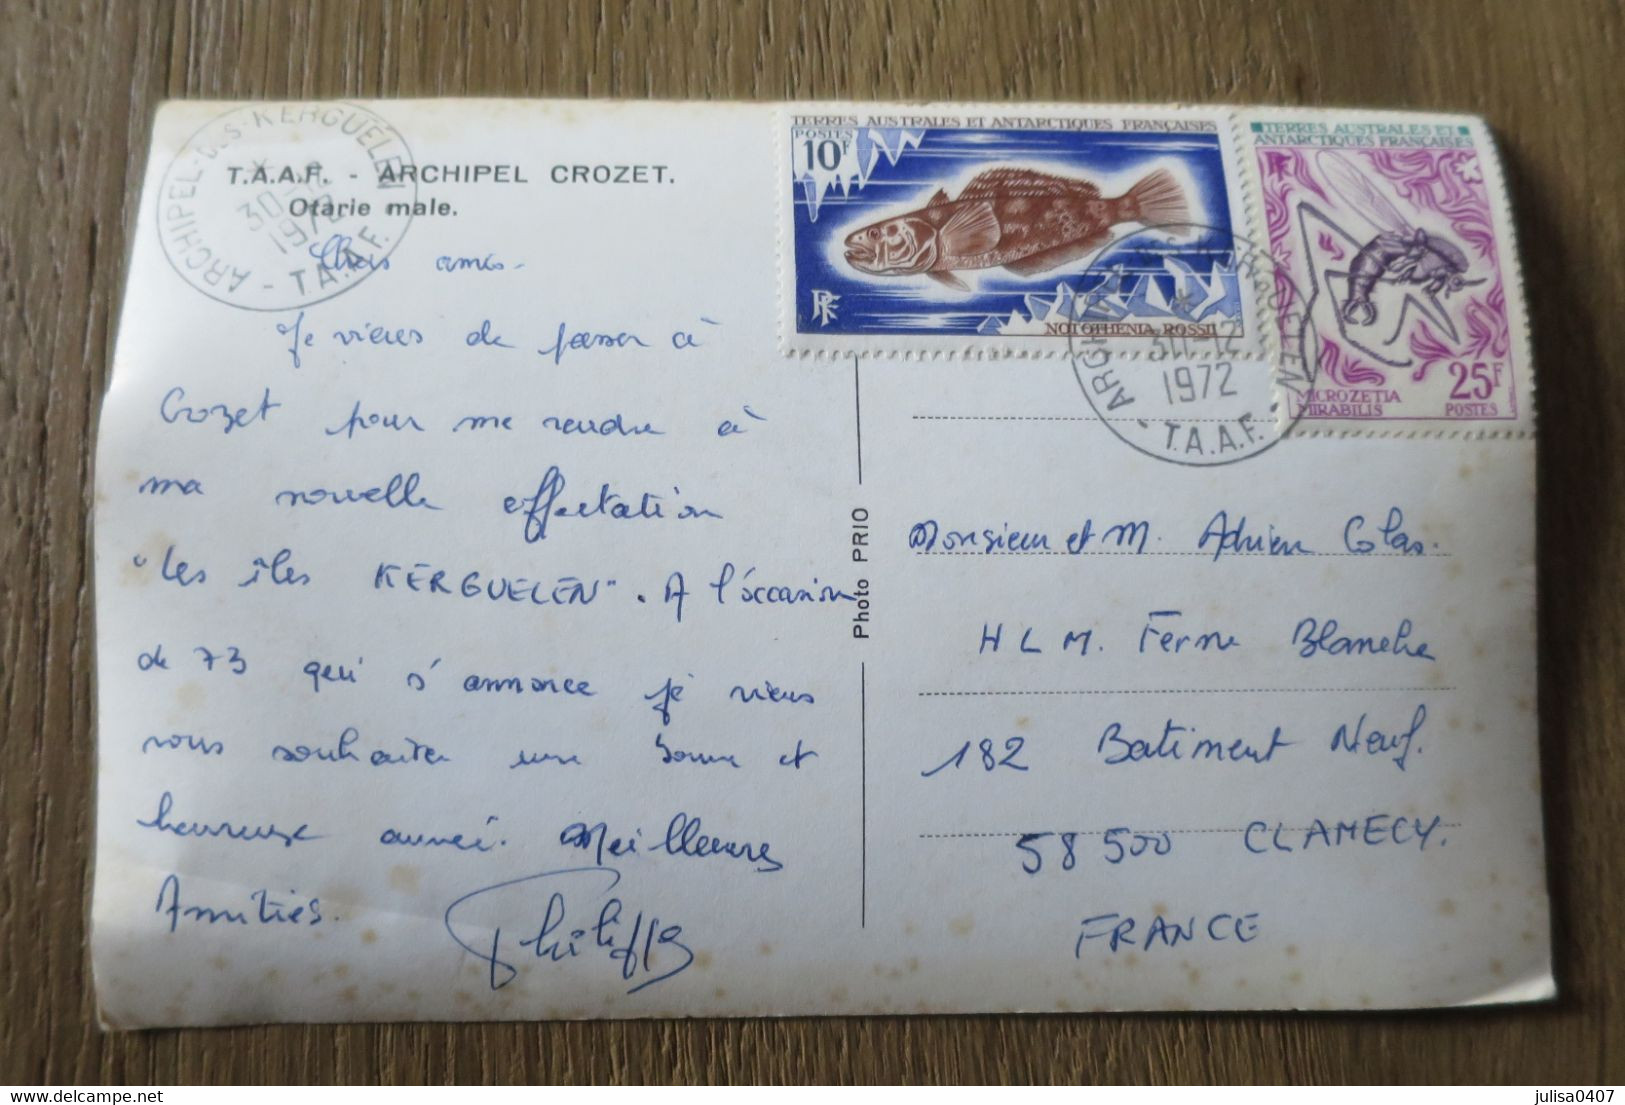 ARCHIPEL DES KERGUELEN
1972
- T.A.A.F.
T.A.A.F. - ARCHIPEL CROZET.
Otarie male.
Chers amis.
Je viens de passer à
Crozet pour me rendre à
ma nouvelle affectation
"Les îles KERGUELEN". A l'occasion
de 73 qui s'annonce je viens
vous souhaiter une bonne et
heureuse année. Meilleures
Amitiés.
Philippe
Photo PRIO
TERRES AUSTRALES ET ANTARCTIQUES FRANÇAISES
POSTES
10F
RF
NOTOTHENIA ROSSII
TERRES AUSTRALES ET
ANTARCTIQUES FRANÇAISES
RF
25F
MICROZETIA
MIRABILIS
POSTES
ARCHIPEL DES KERGUELEN
1972
T.A.A.F.
Monsieur et M. Adrien Colas.
H L M. Ferme Blanche
182 Batiment Neuf.
58 500 CLAMECY.
FRANCE
julisa0407